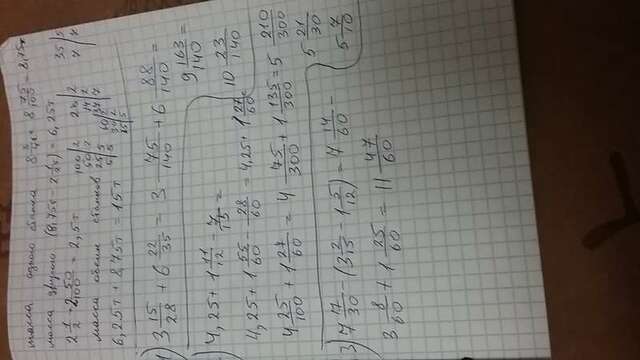 масса одного станка 8 3/4 = 8 75/100 = 8,75т
масса другого (8,75т - 2 1/2т) = 6,25т
2 1/2 = 2 50/100 = 2,5т
масса обеих станков
6,25т + 8,75т = 15т
100 | 2
50 | 2
25 | 5
5 | 5
28 | 2
14 | 2
7 | 7
35 | 5
7 | 7
60 | 2
30 | 2
15 | 5
1) 3 15/28 + 6 22/35 = 3 75/140 + 6 88/140 =
9 163/140 =
10 23/140
4,25 + 1 11/12 - 7/15 =
4,25 + 1 55/60 - 28/60 = 4,25 + 1 27/60 =
4 25/100 + 1 27/60 = 4 75/300 + 1 135/300 = 5 210/300
5 21/30
5 7/10
3) 7 17/30 - (3 2/15 - 1 5/12) = 7 14/60 -
3 8/60 + 1 25/60 = 11 47/60